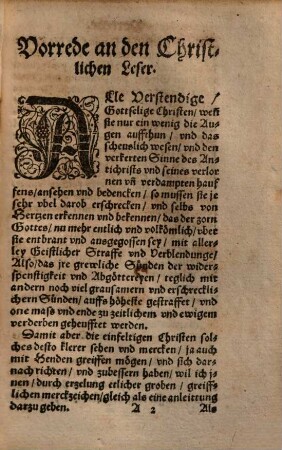 Vorrede an den Christ⸗
lichen Leser.
ALle Verstendige /
Gottselige Christen/ wen̄
sie nur ein wenig die Au⸗
gen auffthun/ vnd das
scheuslich wesen/ vnd den
verkerten Sinne des An⸗
tichrists vnd seines verlor
nen vn̄ verdampten hauf
fens/ansehen vnd bedencken/ so mussen sie je
sehr vbel darob erschrecken/ vnd selbs von
Hertzen erkennen vnd bekennen/ das der zorn
Gottes/ nu mehr entlich vnd volkömlich/ vber
sie entbrant vnd ausgegossen sey/ mit aller⸗
ley Geistlicher Straffe vnd Verblendunge/
Also/das jre grewliche Sünden der wider⸗
spenstigkeit vnd Abgöttereyen/ teglich mit
andern noch viel grausamern vnd erschreckli
chern Sünden/ auffs höheste gestraffet/ vnd
one mass vnd ende zu zeitlichem vnd ewigem
verderben geheuffet werden.
Damit aber die einfeltigen Christen sol⸗
ches desto klerer sehen vnd mercken/ ja auch
mit Henden greiffen mögen/ vnd sich dar⸗
nach richten/ vnd zubessern haben/ wil ich j⸗
nen/ durch erzelung etlicher groben/ greiff⸗
lichen merckzeichen/gleich als eine anleittung
darzu geben. A 2 Als